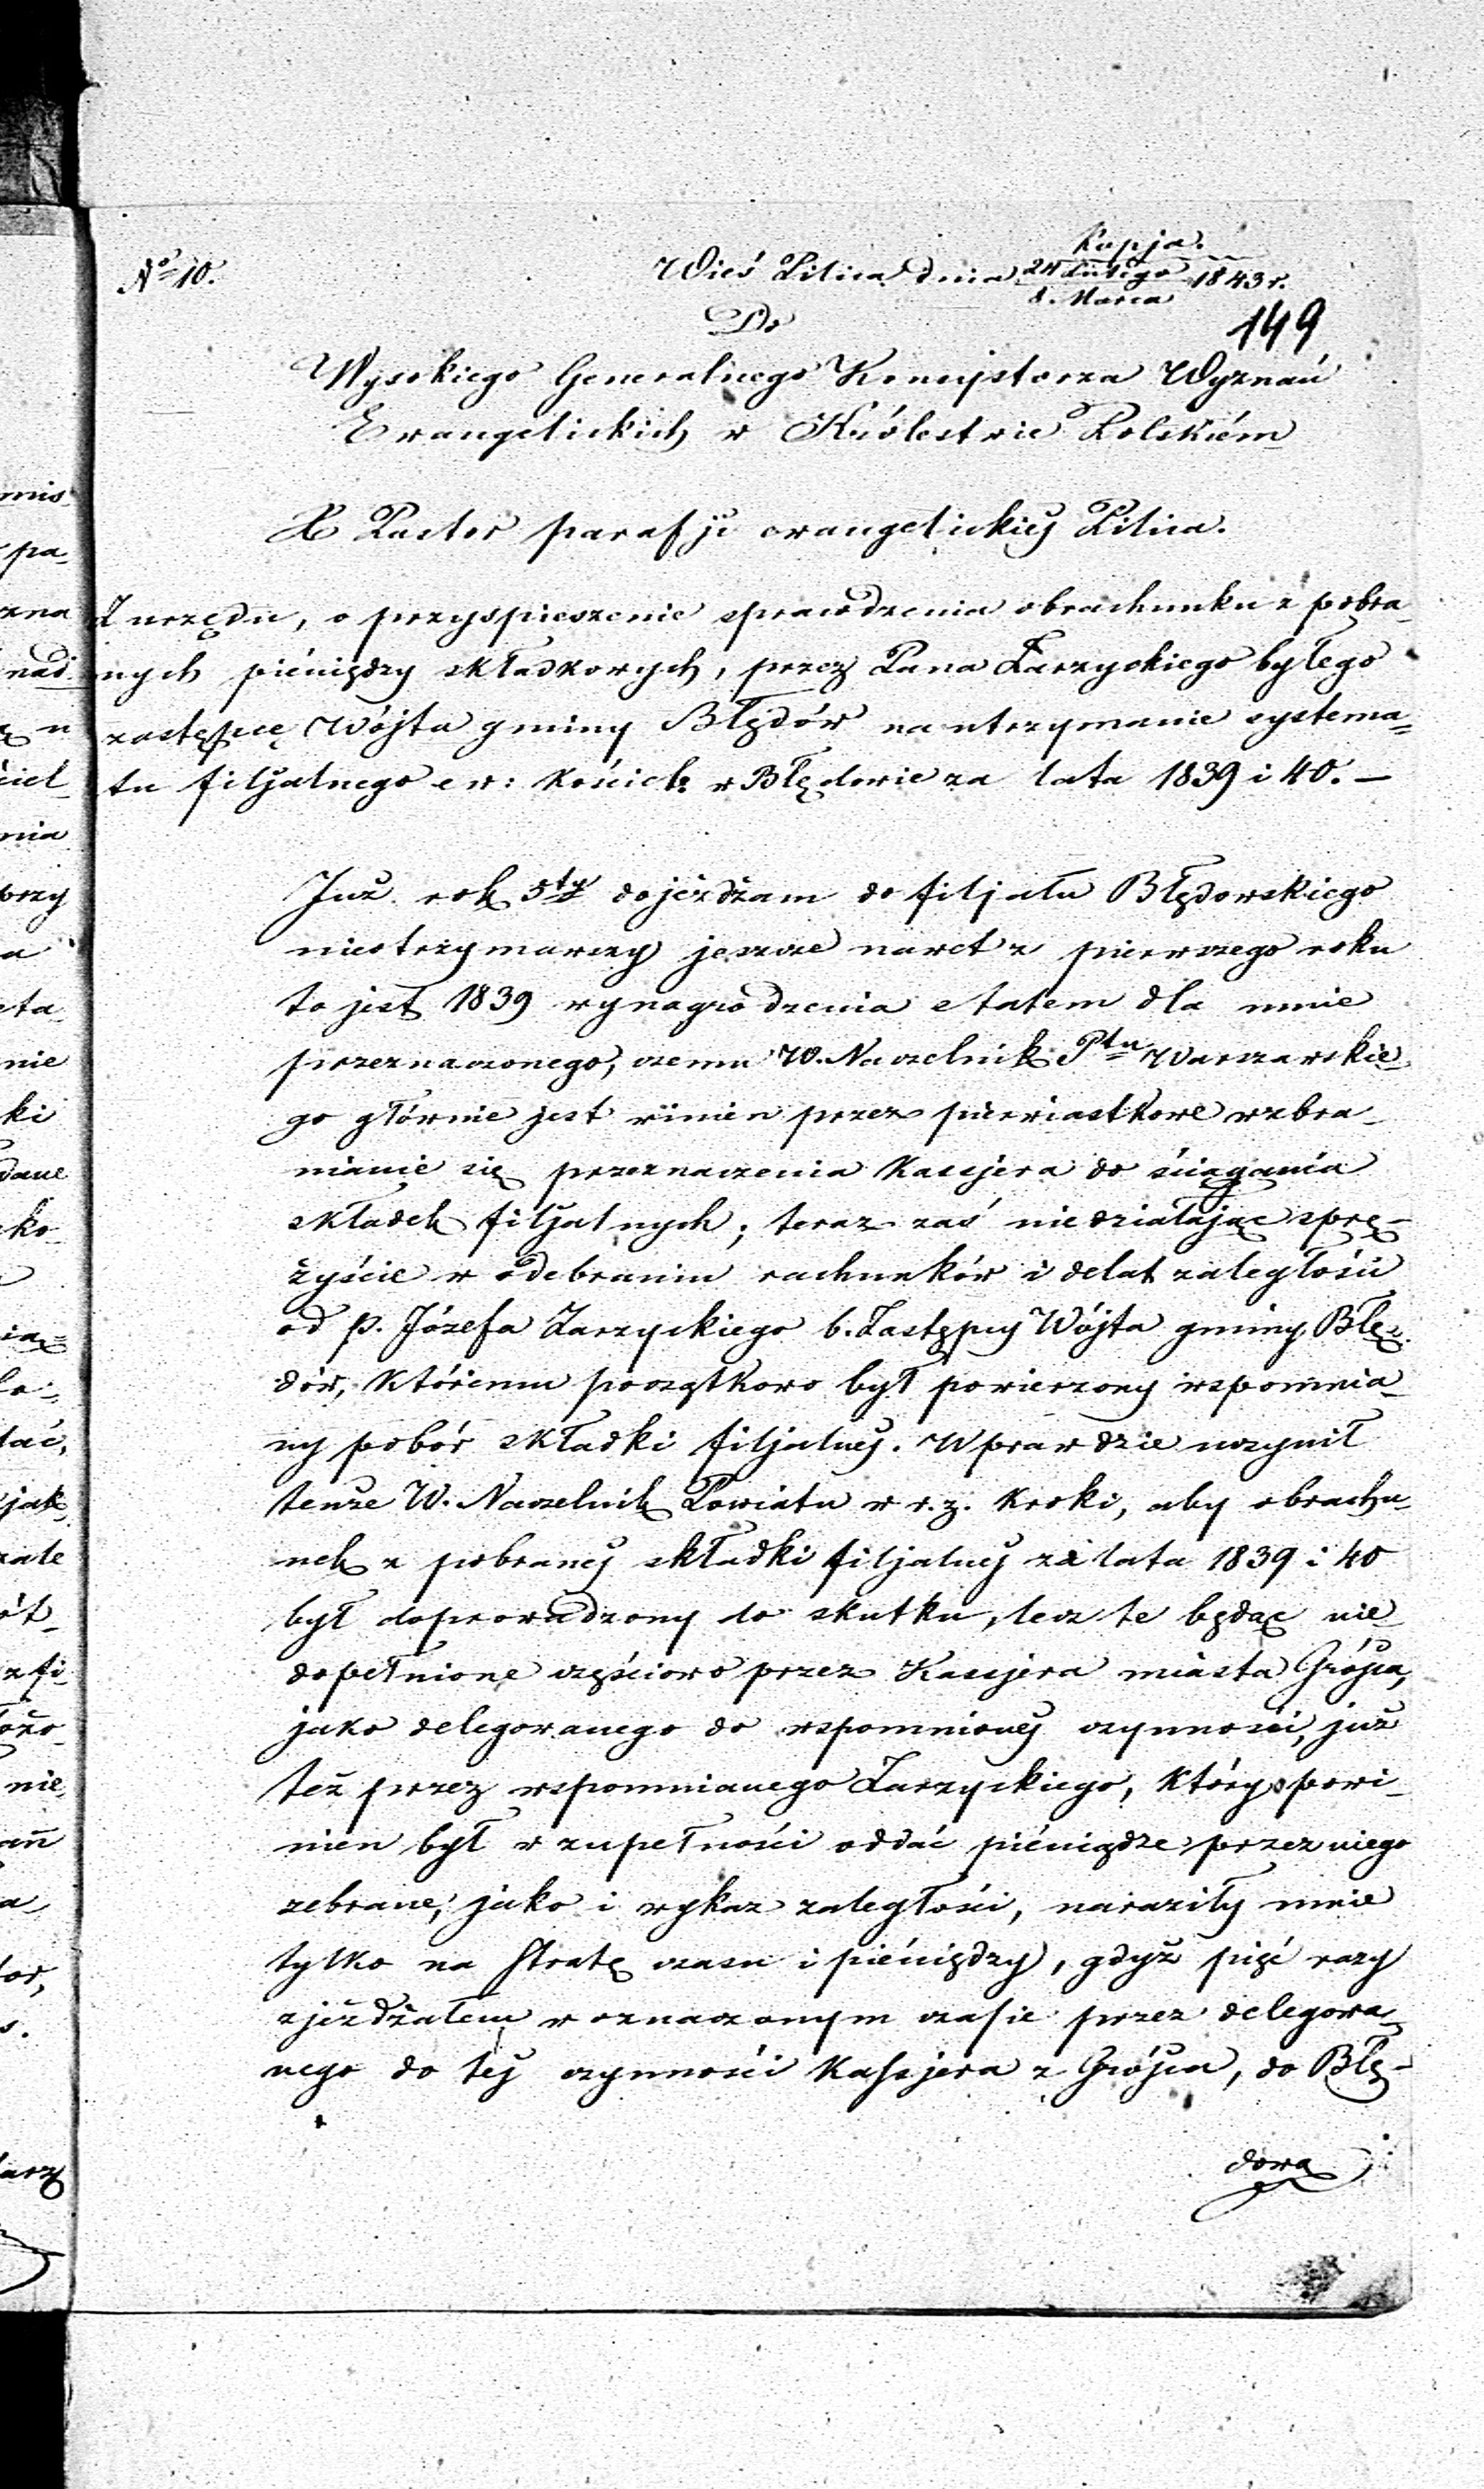 Kopja.
Nº 10. Wieś Pilica dnia 24 Lutego / 8. Marca 1843 r.
149
Do
Wysokiego Generalnego Konsystorza Wyznań
Ewangelickich w Królestwie Polskiém
X Pastor parafji ewangelickiej Pilica.
Z urzędu, o przyspieszenie sprawdzenia obrachunku z pobra-
nych piéniędzy składkowych, przez Pana Zarzyckiego byłego
zastępcę Wójta gminy Błędów na utrzymanie systema-
tu filjalnego ew: kościel: w Błędowie za lata 1839 i 40. —
Już rok 5ty dojeżdżam do filjału Błędowskiego
nieotrzymawszy jeszcze nawet z pierwszego roku
to jest 1839 wynagrodzenia etatem dla mnie
przeznaczonego, czemu W. Naczelnik Ptu Warszawskie-
go głównie jest winien przez pierwiastkowe wzbra-
nianie się przeznaczenia Kassjera do ściągania
składek filjalnych; teraz zaś niedziałając sprę-
żyście w odebraniu rachunków i delat zaległości
od p. Józefa Zarzyckiego b. Zastępcy Wójta gminy Błę-
dów, któremu początkowo był powierzony wspomnia-
ny pobór składki filjalnej. Wprawdzie uczynił
tenże W. Naczelnik Powiatu w r.z. kroki, aby obrachu-
nek z pobranej składki filjalnej za lata 1839 i 40
był doprowadzony do skutku, lecz te będąc nie-
dopełnione częściowo przez Kassjera miasta Grójca,
jako delegowanego do wspomnionej czynności, już
też przez wspomnianego Zarzyckiego, który powi-
nien był w zupełności oddać piéniądze przez niego
zebrane, jako i wykaz zaległości, naraziły mnie
tylko na stratę czasu i piéniędzy, gdyż pięć razy
zjeżdżałem w oznaczonym czasie przez delegowa-
nego do tej czynności Kassjera z Grójca, do Błę-
dowa